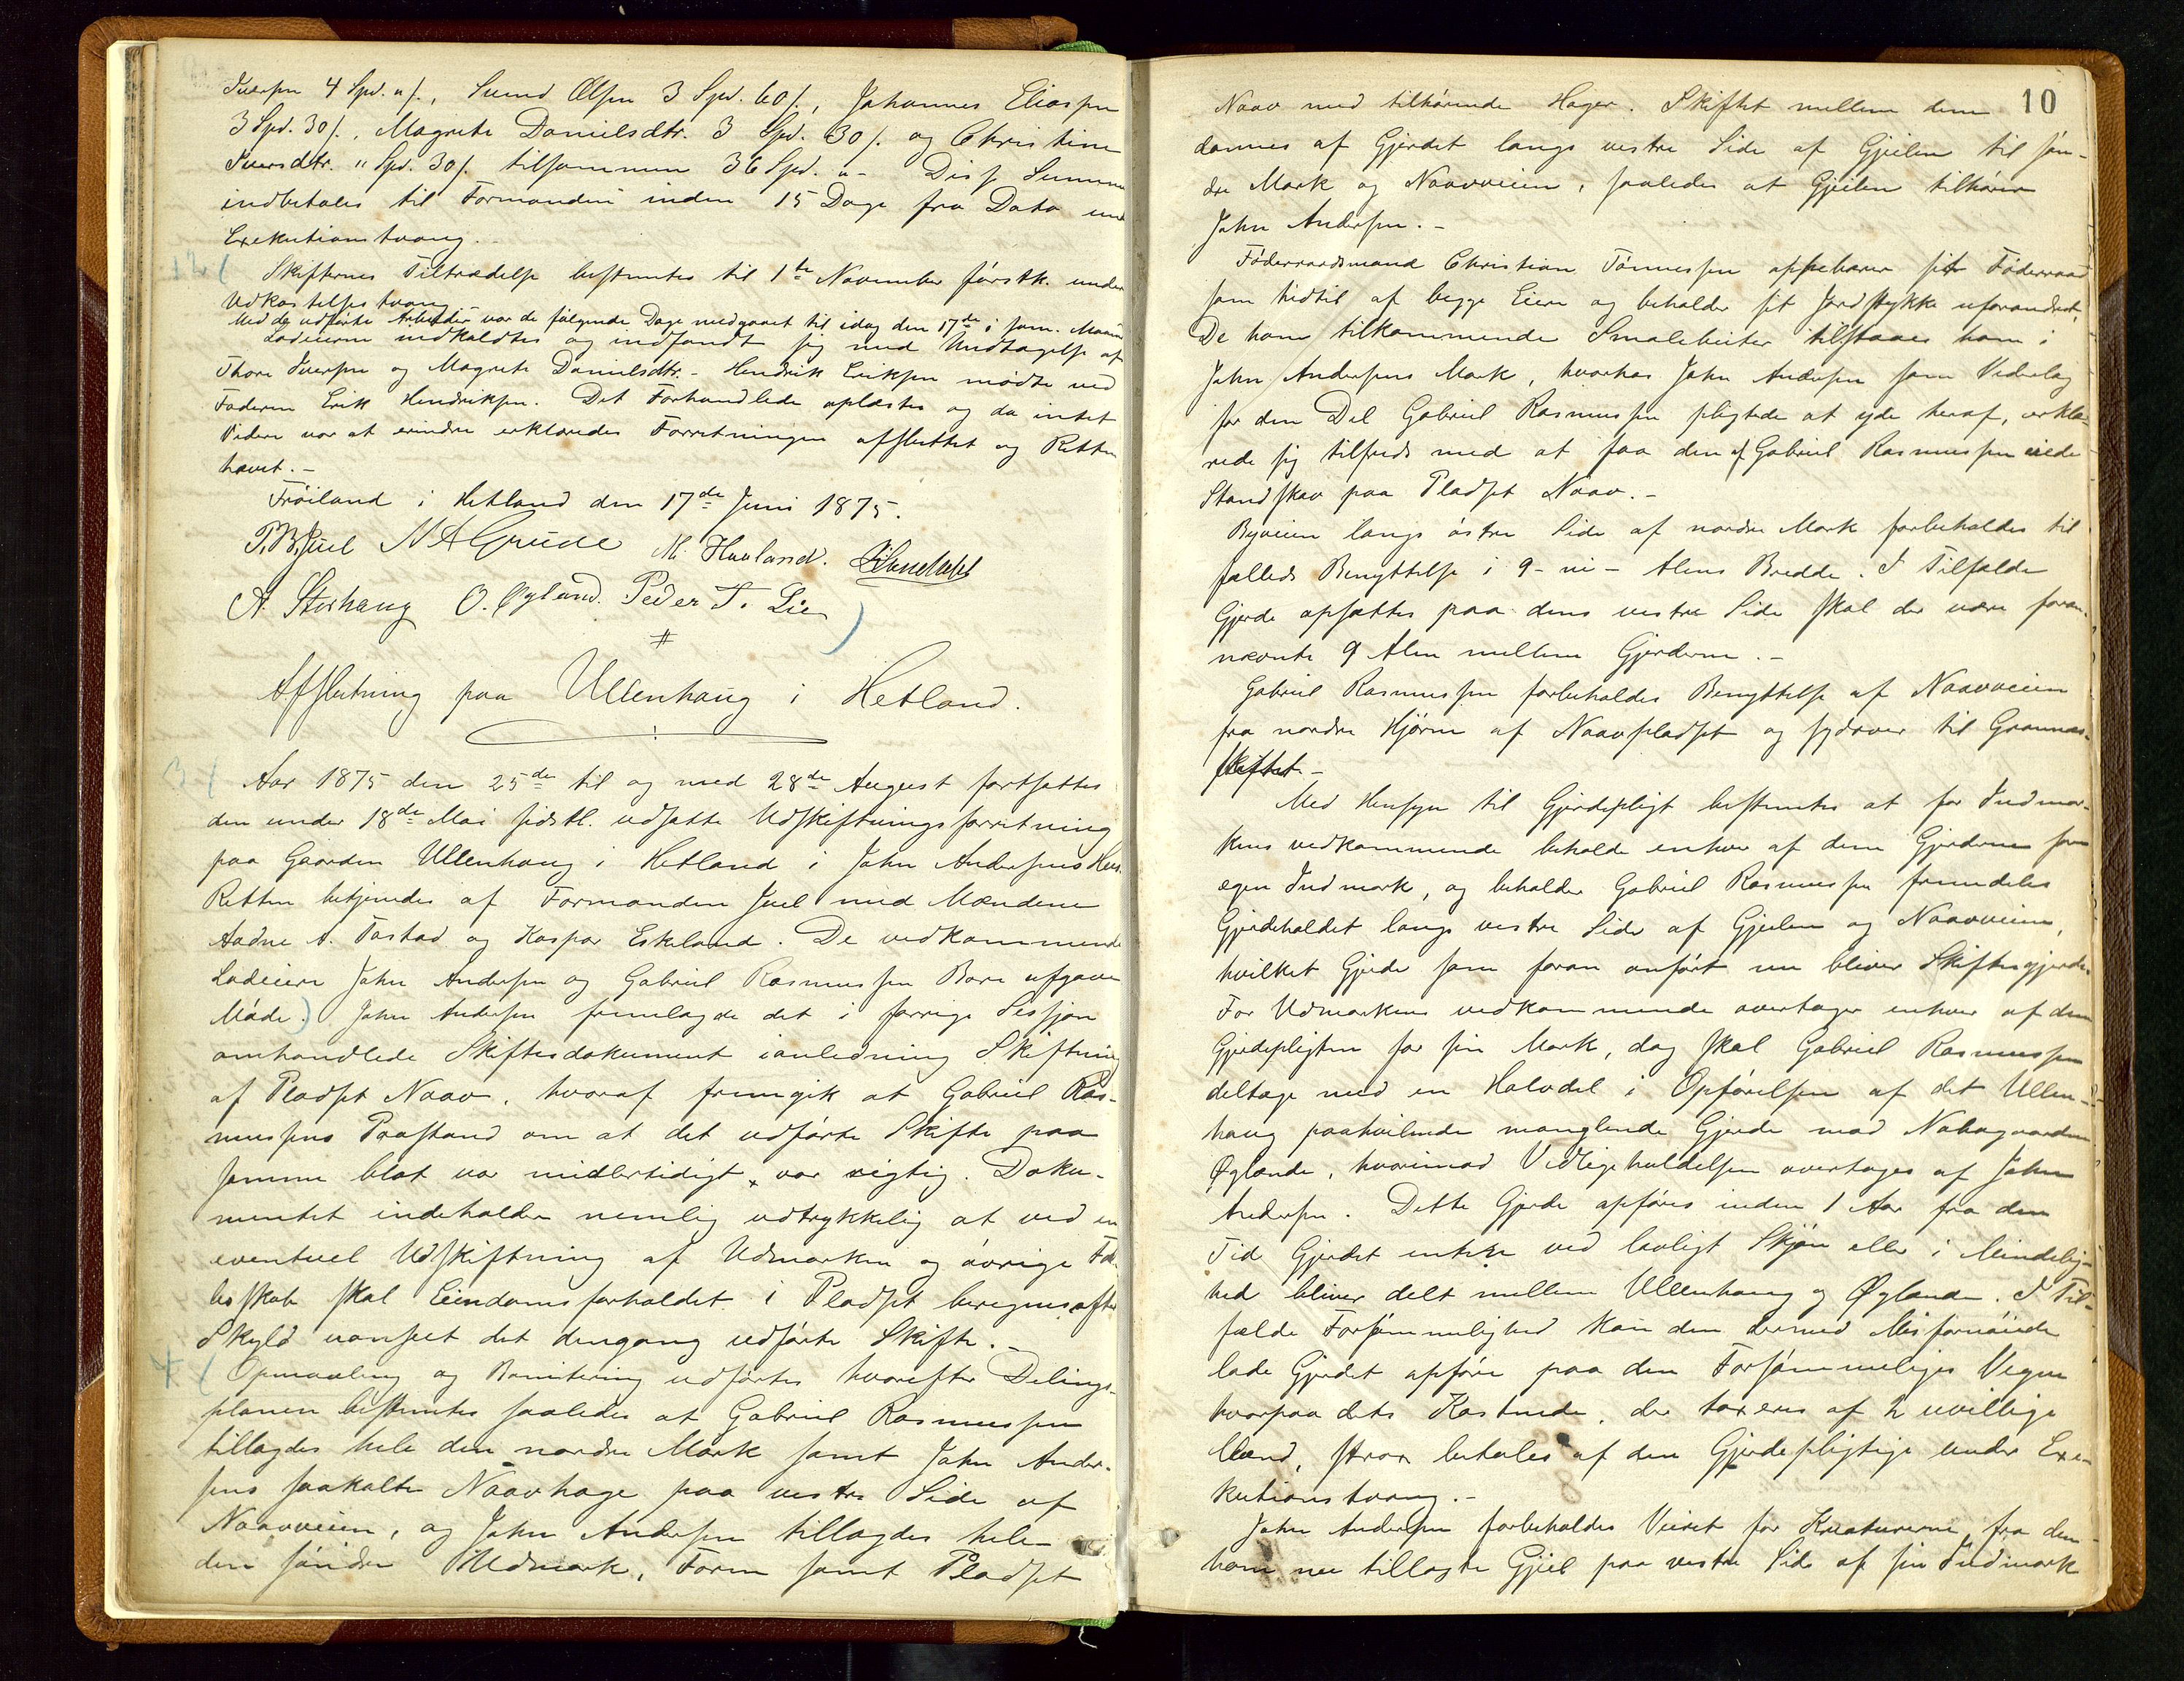 Iversen 4 Spd. " /., Svend Olsen 3 Spd. 60 /., Johannes Eliassen
3 Spd. 30 /., Magrete Danielsdtr. 3 Spd. 30 /. og Christine
Iversdtr. " Spd. 30 /. tilsammen 36 Spd. "- Disse Summer
indbetales til Formanden inden 15 Dage fra Dato under
Exekutionstvang.
Skifternes Tiltrædelse bestemtes til 1ste November førstk. under
Udkastelses tvang.-
Med de udførte Arbeider var de følgende Dage medgaaet til idag den 17de i sam. Maaned
Lodeierne indkaldtes og indfandt sig med Undtagelse af
Thore Iversen og Magrete Danielsdtr. - Hendrik Eriksen mødte ved
Faderen Erik Hendriksen. Det Forhandlede oplæstes og da intet
Videre var at erindre erklæredes Forretningen afsluttet og Retten
hævet.-
Frøiland i Hetland den 17de Juni 1875.
P. B. Juel N A Grude M. Haaland.
A. Storhaug O. Øgland. Peder T. Lie
#
Afslutning paa Ullenhaug i Hetland.
3 (
Aar 1875 den 25de til og med 28de August fortsattes
den under 18de Mai sidstl. udsatte Udskiftningsforretning
paa Gaarden Ullenhaug i Hetland i John Andersens Hus.
Retten betjentes af Formanden Juel med Mændene
Aadne A. Tastad og Kaspar Eskeland. De vedkommende
Lodeiere John Andersen og Gabriel Rasmussen Bore afgave
Møde.) John Andersen fremlagde det i forrige Session
omhandlede Skiftesdokument ianledning Skiftning
af Pladset Naav, hvoraf fremgik at Gabriel Ras-
mussens Paastand om at det udførte Skifte paa
samme blot var midlertidigt, var rigtig. Doku-
mentet indeholder nemlig udtrykkelig at ved en
eventuel Udskiftning af Udmarken og øvrige Fæl-
lesskab skal Eiendomsforholdet i Pladset beregnes efter
Skyld uanseet det dengang udførte Skifte.-
4 (
Opmaaling og Bonitering udførtes hvorefter Delings-
planen bestemtes saaledes at Gabriel Rasmussen
tillagdes hele den nordre Mark samt John Ander-
sens saakalte Naavhage paa vestre Side af
Naavveien, og John Andersen tillagdes hele
den søndre Udmark, Torvm samt Pladset
10
Naav med tilhørende Hager. Skiftet mellem dem
dannes af Gjerdet langs vestre Side af Gjeilen til søn-
dre Mark og Naavveien, saaledes at Gjeilen tilhører
John Andersen.-
Føderaadsmand Christian Tønnessen oppebærer sit Føderaad
som hidtil af begge Eiere og beholder sit Jordstykke uforandret.
De ham tilkommende Smalebeiter tilstaaes ham i
John Andersens Mark, hvorhos John Andersen som Vederlag
for den Del Gabriel Rasmussen pligtede at yde heraf, erklæ-
rede sig tilfreds med at faa den af Gabriel Rasmussen eiede
Standskov paa Pladset Naav.-
Byveien langs østre Side af nordre Mark forbeholdes til
fælleds Benyttelse i 9- ni - Alens Bredde. I Tilfælde
Gjerde opsættes paa dens vestre Side skal der være foran-
nævnte 9 Alen mellem Gjerderne.-
Gabriel Rasmussen forbeholdes Benyttelse af Naavveien
fra nordre Hjørne af Naavpladset og sydover til Grannes-
skiftet.-
Med Hensyn til Gjerdepligt bestemtes at for Indmar-
kens vedkommende beholde enhver af dem Gjerderne for
egen Indmark, og beholder Gabriel Rasmussen fremdeles
Gjerdeholdet langs vestre Side af Gjeilen og Naavveien,
hvilket Gjerde som foran anført nu bliver Skiftesgjerde.
For Udmarkens vedkommende overtager enhver af dem
Gjerdepligten for sin Mark, dog skal Gabriel Rasmussen
deltage med en Halvdel i Opførelsen af det Ullen-
haug paahvilende manglende Gjerde mod Nabogaarden
Øglænde, hvorimod Vedligeholdelsen overtages af John
Andersen. Dette Gjerde opføres inden 1 Aar fra den
Tid Gjerdet enten ved lovligt Skjøn eller i Mindelig-
hed bliver delt mellem Ullenhaug og Øglænde. I Til-
fælde Forsømmelighed kan den dermed Misfornøiede
lade Gjerdet opføre paa den Forsømmeliges Vegne
hvorpaa dets Kostende, der taxeres af 2 uvillige
Mænd, strax betales af den Gjerdepligtige under Exe-
kutionstvang.-
John Andersen forbeholdes Veiret for Kreaturerne fra den
ham nu tillagte Gjeil paa vestre Side af sin Indmark